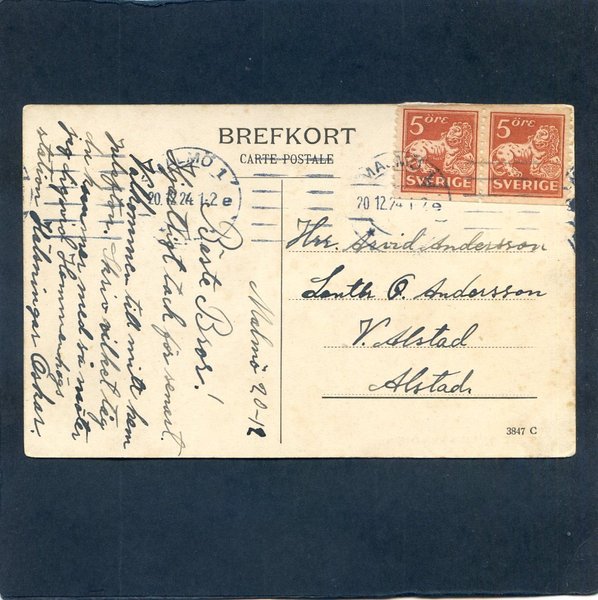 BREFKORT
CARTE POSTALE
5 ÖRE
SVERIGE
5 ÖRE
SVERIGE
MALMÖ 1
20 12 24 1-2 e
MALMÖ 1
20 12 24 1-2 e
Malmö 20-12
Bäste Bror!
Hjärtligt tack för senast.
Välkommen till mitt hem
julafton. Skriv vilket tåg
du kommer med så möter
jag dig vid Hemmanhögs
station Hälsningar Oskar.
Hrr. Arvid Andersson
Lanthr O. Andersson
V. Alstad
Alstad.
3847 C